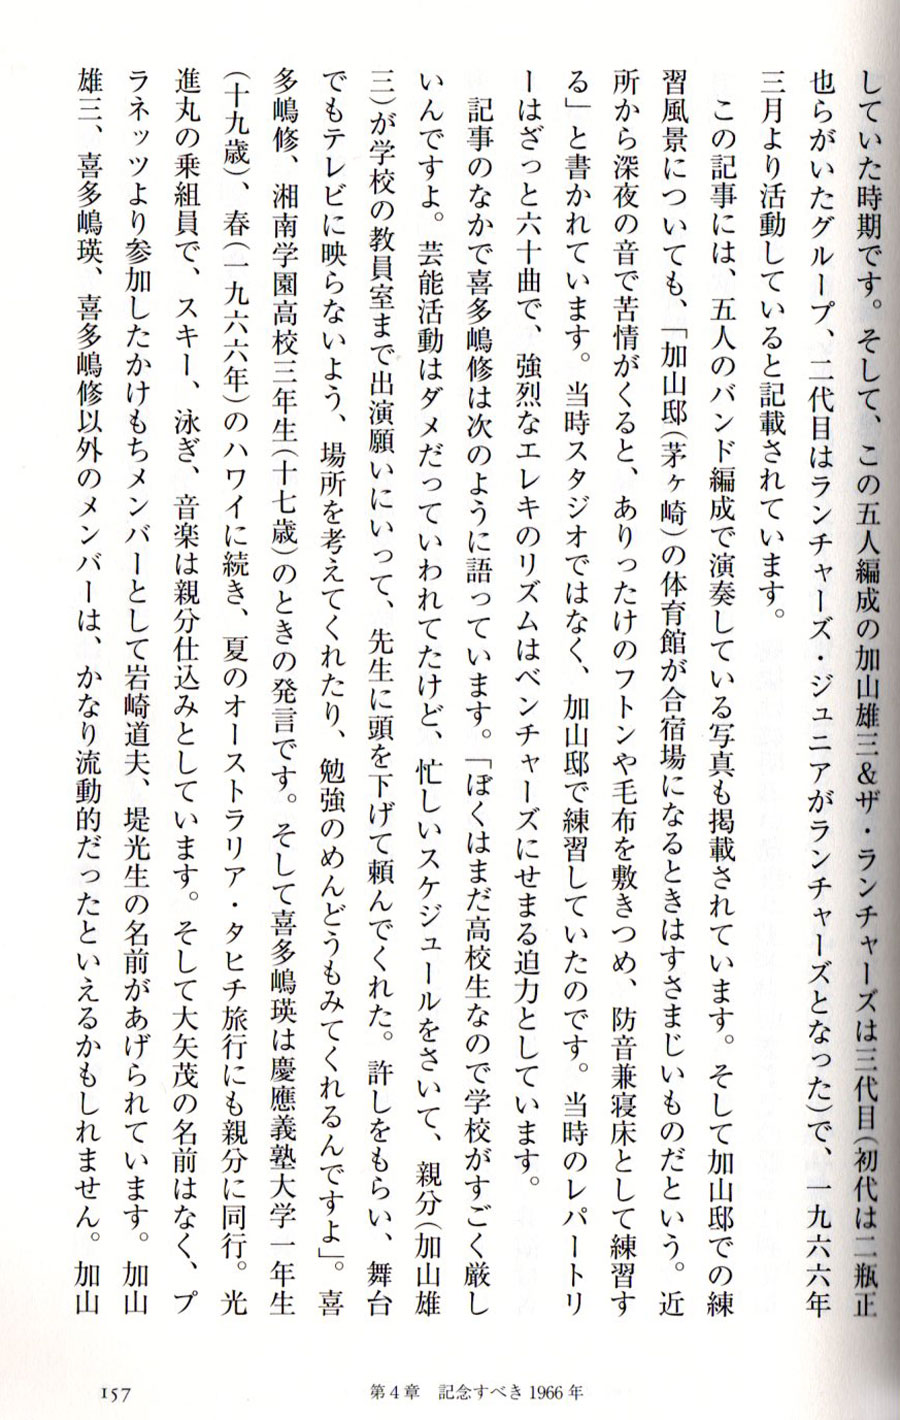 していた時期です。そして、この五人編成の加山雄三&ザ・ランチャーズは三代目(初代は二瓶正
也らがいたグループ、二代目はランチャーズ・ジュニアがランチャーズとなった)で、一九六六年
三月より活動していると記載されています。
この記事には、五人のバンド編成で演奏している写真も掲載されています。そして加山邸での練
習風景についても、「加山邸(茅ヶ崎)の体育館が合宿場になるときはすさまじいものだという。近
所から深夜の音で苦情がくると、ありったけのフトンや毛布を敷きつめ、防音兼寝床として練習す
る」と書かれています。当時スタジオではなく、加山邸で練習していたのです。当時のレパートリ
ーはざっと六十曲で、強烈なエレキのリズムはベンチャーズにせまる迫力としています。
記事のなかで喜多嶋修は次のように語っています。「ぼくはまだ高校生なので学校がすごく厳し
いんですよ。芸能活動はダメだっていわれてたけど、忙しいスケジュールをさいて、親分(加山雄
三)が学校の教員室まで出演願いにいって、先生に頭を下げて頼んでくれた。許しをもらい、舞台
でもテレビに映らないよう、場所を考えてくれたり、勉強のめんどうもみてくれるんですよ」。喜
多嶋修、湘南学園高校三年生(十七歳)のときの発言です。そして喜多嶋瑛は慶應義塾大学一年生
(十九歳)、春(一九六六年)のハワイに続き、夏のオーストラリア・タヒチ旅行にも親分に同行。光
進丸の乗組員で、スキー、泳ぎ、音楽は親分仕込みとしています。そして大矢茂の名前はなく、プ
ラネッツより参加したかけもちメンバーとして岩崎道夫、堤光生の名前があげられています。加山
雄三、喜多嶋瑛、喜多嶋修以外のメンバーは、かなり流動的だったといえるかもしれません。加山
157
第4章 記念すべき1966年